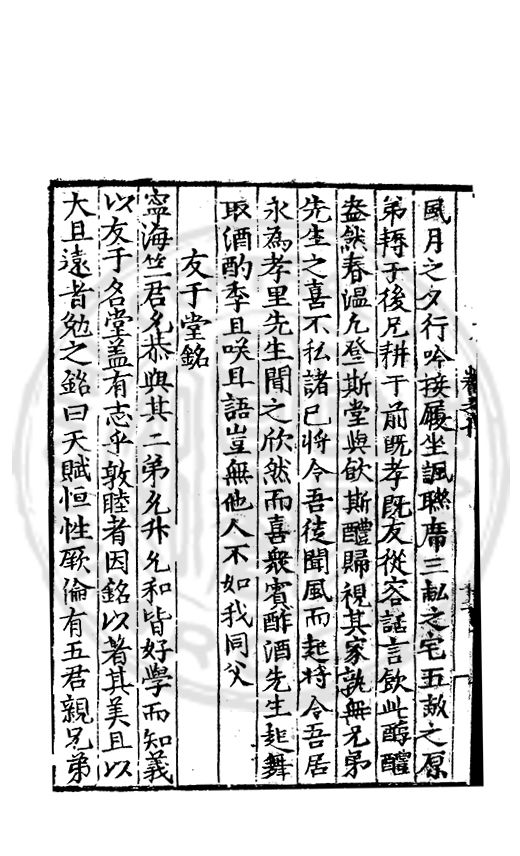 風月之夕行吟接屨坐諷聯席三畝之宅五畝之原
弟耨于後兄耕于前既孝既友從容話言飲此醇醴
盎然春溫凡登斯堂與飲斯醴歸視其家孰無兄弟
先生之喜不私諸已將令吾徒聞風而起將令吾居
永為孝里先生聞之欣然而喜衆賓酢酒先生起舞
取酒酌季且咲且語豈無他人不如我同父
友于堂銘
寧海竺君允恭與其二弟允升允和皆好學而知義
以友于名堂盖有志乎敦睦者因銘以著其美且以
大且遠者勉之銘曰天賦恒性厥倫有五君親兄弟